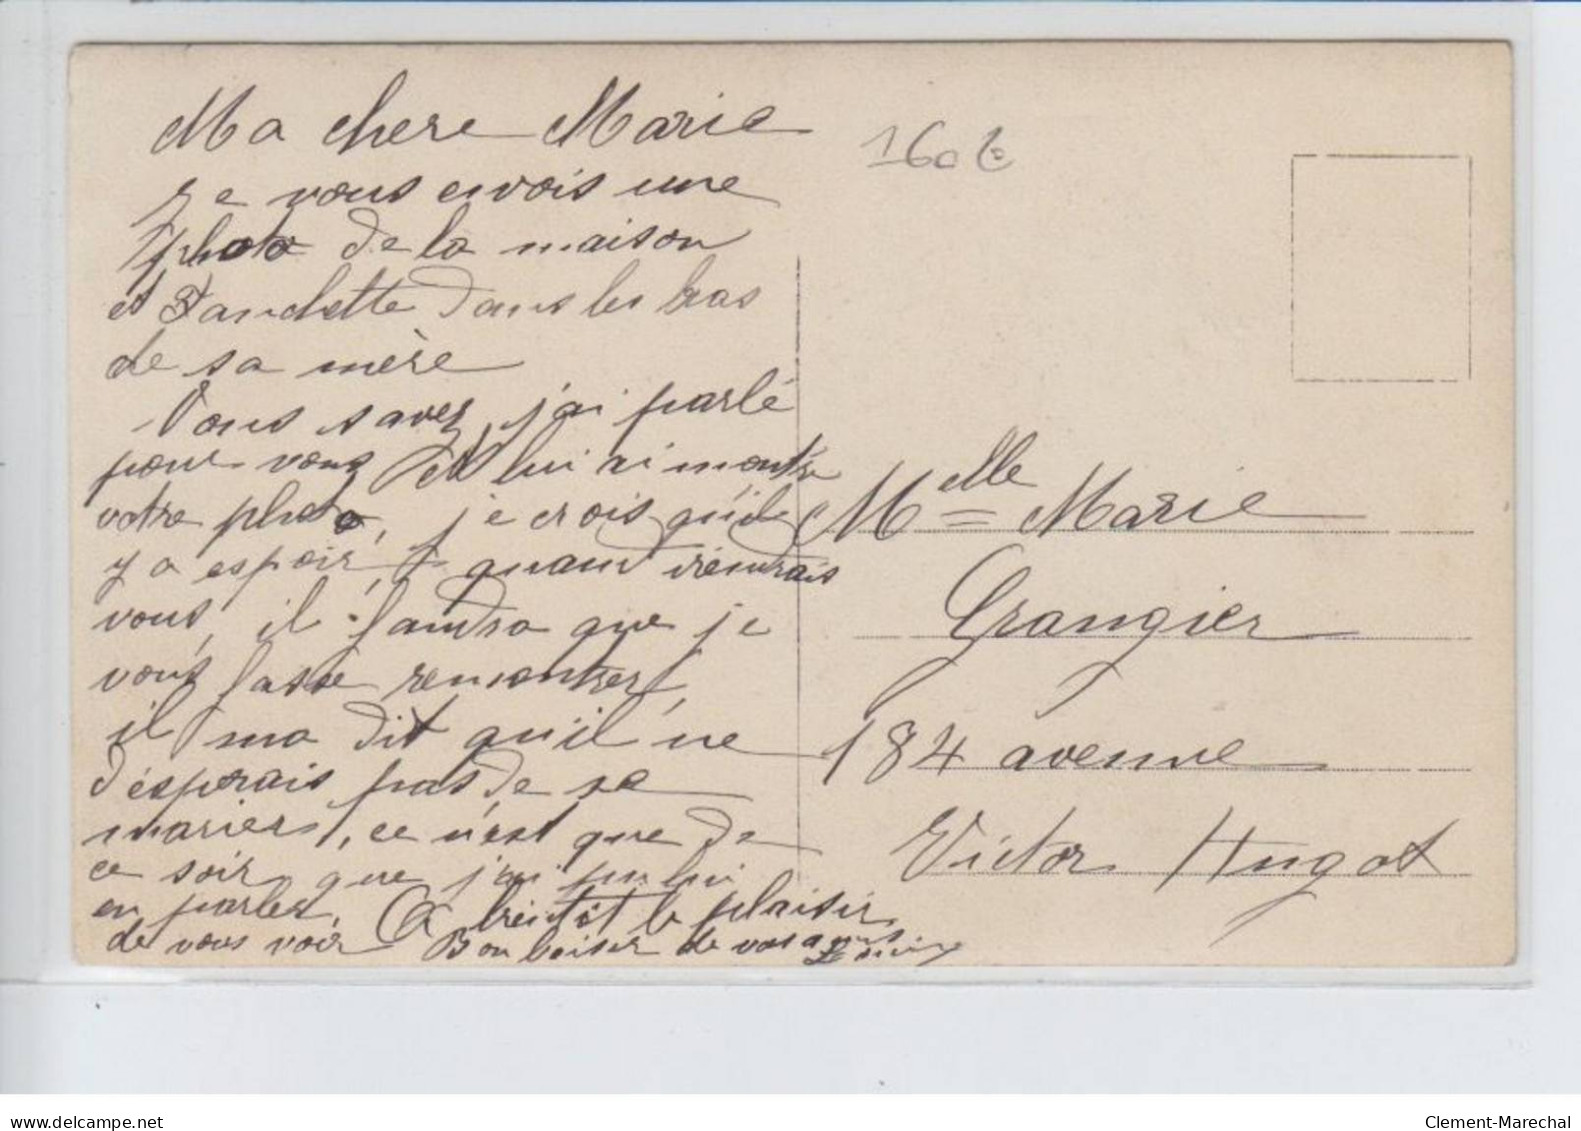 Ma chere Marie
je vous envois une
photo de la maison
et Fanchette dans les bras
de sa mère
Vous savez, j'ai parlé
pour vous et lui ai montré
votre photo, je crois qu'ile
y a espoir, quand viendrais
vous, il faudra que je
vous fasse remontrer,
il ma dit qu'il ne
d'esperais pas de se
marier, ce n'est que de
ce soir que j'ai pu lui
en parler. A bientôt le plaisir
de vous voir Bon baiser de vos amis
160 f
Melle Marie
Grangier
184 avenue
Victor Hugot
www.delcampe.net
Clement-Marechal